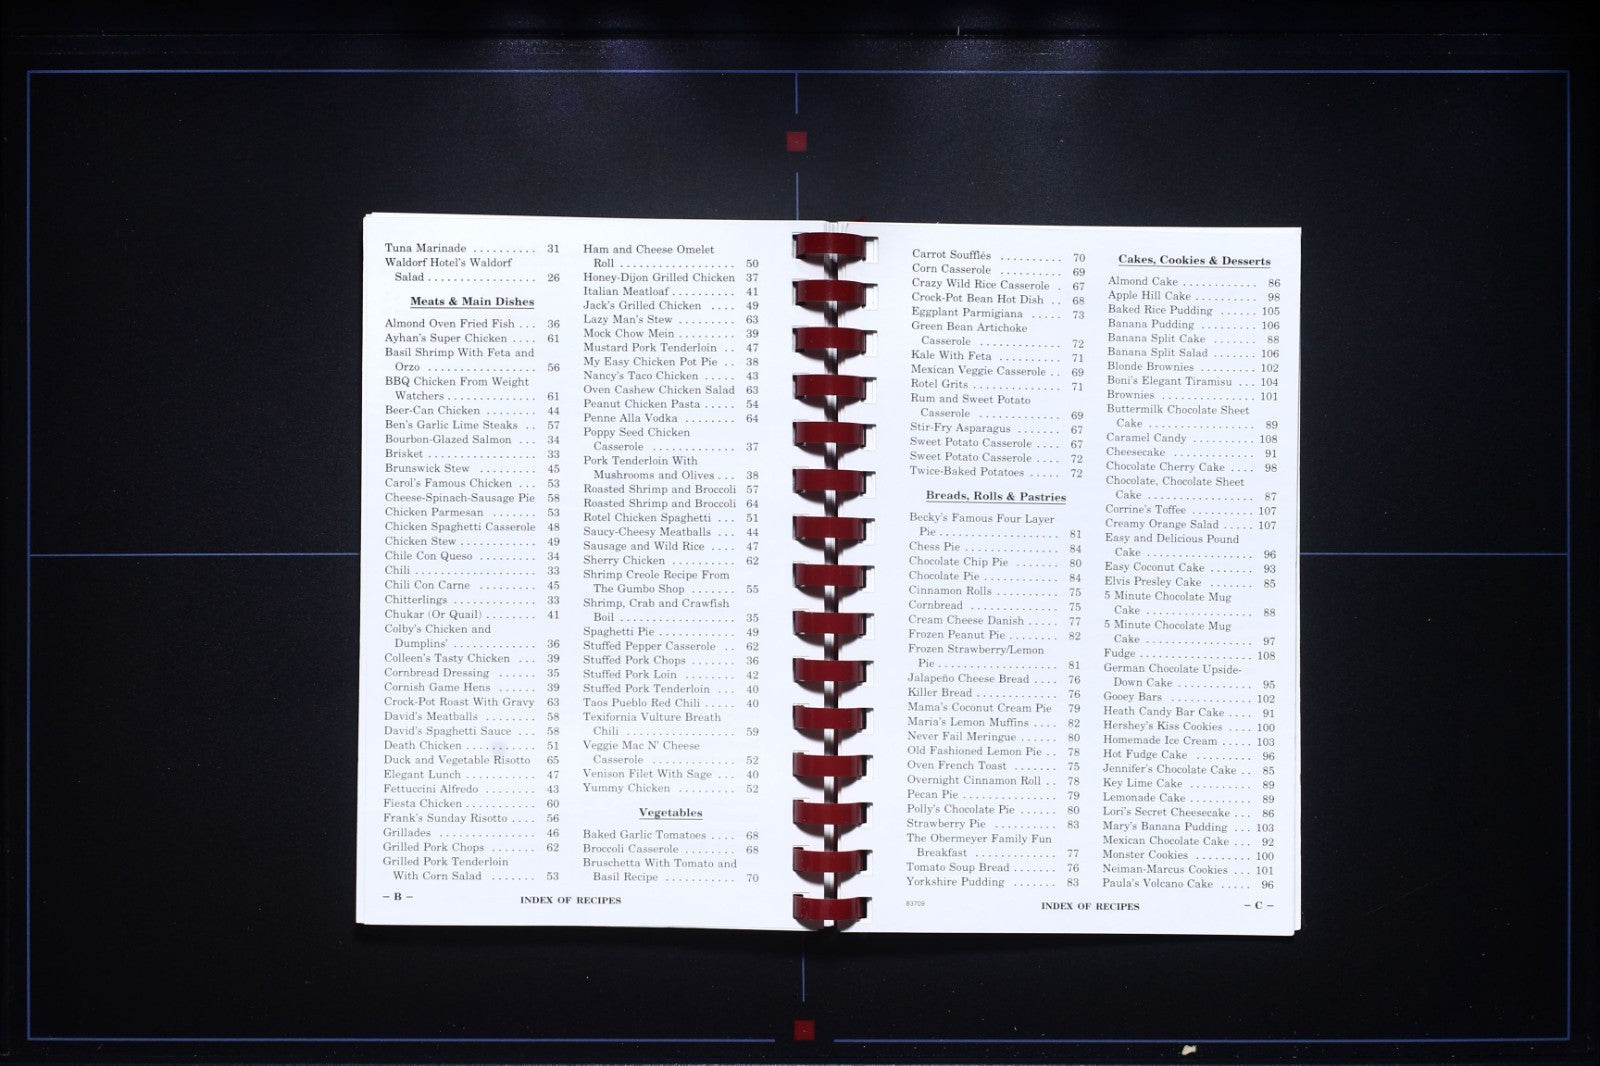 Tuna Marinade .......... 31
Waldorf Hotel's Waldorf
Salad ................ 26
Meats & Main Dishes
Almond Oven Fried Fish ... 36
Ayhan's Super Chicken .... 61
Basil Shrimp With Feta and
Orzo ................ 56
BBQ Chicken From Weight
Watchers ............. 61
Beer-Can Chicken ........ 44
Ben's Garlic Lime Steaks .. 57
Bourbon-Glazed Salmon ... 34
Brisket ................ 33
Brunswick Stew ......... 45
Carol's Famous Chicken ... 53
Cheese-Spinach-Sausage Pie 58
Chicken Parmesan ....... 53
Chicken Spaghetti Casserole 48
Chicken Stew ........... 49
Chile Con Queso ........ 34
Chili .................. 33
Chili Con Carne ......... 45
Chitterlings ............ 33
Chukar (Or Quail) ........ 41
Colby's Chicken and
Dumplins' ............ 36
Colleen's Tasty Chicken ... 39
Cornbread Dressing ...... 35
Cornish Game Hens ...... 39
Crock-Pot Roast With Gravy 63
David's Meatballs ....... 58
David's Spaghetti Sauce ... 58
Death Chicken .......... 51
Duck and Vegetable Risotto 65
Elegant Lunch .......... 47
Fettuccini Alfredo ....... 43
Fiesta Chicken .......... 60
Frank's Sunday Risotto .... 56
Grillades .............. 46
Grilled Pork Chops ....... 62
Grilled Pork Tenderloin
With Corn Salad ....... 53
– B –
Ham and Cheese Omelet
Roll .................. 50
Honey-Dijon Grilled Chicken 37
Italian Meatloaf .......... 41
Jack's Grilled Chicken .... 49
Lazy Man's Stew ......... 63
Mock Chow Mein ......... 39
Mustard Pork Tenderloin .. 47
My Easy Chicken Pot Pie .. 38
Nancy's Taco Chicken ..... 43
Oven Cashew Chicken Salad 63
Peanut Chicken Pasta ..... 54
Penne Alla Vodka ........ 64
Poppy Seed Chicken
Casserole ............. 37
Pork Tenderloin With
Mushrooms and Olives ... 38
Roasted Shrimp and Broccoli 57
Roasted Shrimp and Broccoli 64
Rotel Chicken Spaghetti ... 51
Saucy-Cheesy Meatballs ... 44
Sausage and Wild Rice .... 47
Sherry Chicken .......... 62
Shrimp Creole Recipe From
The Gumbo Shop ....... 55
Shrimp, Crab and Crawfish
Boil .................. 35
Spaghetti Pie ............ 49
Stuffed Pepper Casserole .. 62
Stuffed Pork Chops ....... 36
Stuffed Pork Loin ........ 42
Stuffed Pork Tenderloin ... 40
Taos Pueblo Red Chili ..... 40
Texifornia Vulture Breath
Chili ................. 59
Veggie Mac N' Cheese
Casserole ............. 52
Venison Filet With Sage ... 40
Yummy Chicken ......... 52
Vegetables
Baked Garlic Tomatoes .... 68
Broccoli Casserole ........ 68
Bruschetta With Tomato and
Basil Recipe ........... 70
INDEX OF RECIPES
Carrot Soufflés .......... 70
Corn Casserole .......... 69
Crazy Wild Rice Casserole . 67
Crock-Pot Bean Hot Dish .. 68
Eggplant Parmigiana ..... 73
Green Bean Artichoke
Casserole ............. 72
Kale With Feta .......... 71
Mexican Veggie Casserole .. 69
Rotel Grits ............. 71
Rum and Sweet Potato
Casserole ............. 69
Stir-Fry Asparagus ....... 67
Sweet Potato Casserole .... 67
Sweet Potato Casserole .... 72
Twice-Baked Potatoes ..... 72
Breads, Rolls & Pastries
Becky's Famous Four Layer
Pie ................... 81
Chess Pie .............. 84
Chocolate Chip Pie ....... 80
Chocolate Pie ........... 84
Cinnamon Rolls ......... 75
Cornbread ............. 75
Cream Cheese Danish ..... 77
Frozen Peanut Pie ........ 82
Frozen Strawberry/Lemon
Pie ................... 81
Jalapeño Cheese Bread .... 76
Killer Bread ............ 76
Mama's Coconut Cream Pie 79
Maria's Lemon Muffins .... 82
Never Fail Meringue ...... 80
Old Fashioned Lemon Pie .. 78
Oven French Toast ....... 75
Overnight Cinnamon Roll .. 78
Pecan Pie .............. 79
Polly's Chocolate Pie ...... 80
Strawberry Pie .......... 83
The Obermeyer Family Fun
Breakfast ............. 77
Tomato Soup Bread ....... 76
Yorkshire Pudding ....... 83
83709
Cakes, Cookies & Desserts
Almond Cake ............ 86
Apple Hill Cake .......... 98
Baked Rice Pudding ...... 105
Banana Pudding ......... 106
Banana Split Cake ....... 88
Banana Split Salad ....... 106
Blonde Brownies ......... 102
Boni's Elegant Tiramisu ... 104
Brownies ............... 101
Buttermilk Chocolate Sheet
Cake ................. 89
Caramel Candy .......... 108
Cheesecake ............. 91
Chocolate Cherry Cake .... 98
Chocolate, Chocolate Sheet
Cake ................. 87
Corrine's Toffee .......... 107
Creamy Orange Salad ..... 107
Easy and Delicious Pound
Cake ................. 96
Easy Coconut Cake ....... 93
Elvis Presley Cake ....... 85
5 Minute Chocolate Mug
Cake ................. 88
5 Minute Chocolate Mug
Cake ................. 97
Fudge ................. 108
German Chocolate Upside-
Down Cake ............ 95
Gooey Bars ............. 102
Heath Candy Bar Cake .... 91
Hershey's Kiss Cookies .... 100
Homemade Ice Cream ..... 103
Hot Fudge Cake ......... 96
Jennifer's Chocolate Cake .. 85
Key Lime Cake .......... 89
Lemonade Cake .......... 89
Lori's Secret Cheesecake ... 86
Mary's Banana Pudding ... 103
Mexican Chocolate Cake ... 92
Monster Cookies ......... 100
Neiman-Marcus Cookies ... 101
Paula's Volcano Cake ..... 96
INDEX OF RECIPES
– C –